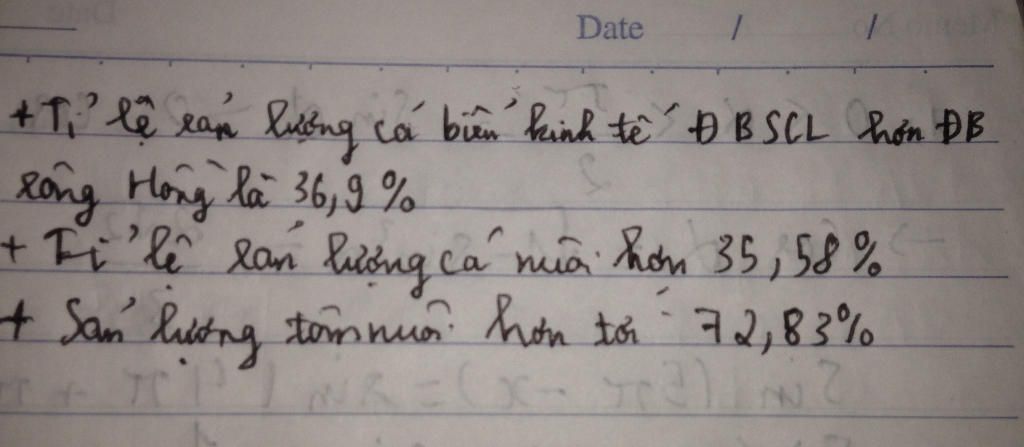 Date / /
+ Tỉ lệ sản lượng cá biển kinh tế ĐBSCL hơn ĐB
sông Hồng là 36,9%
+ Tỉ lệ sản lượng cá nuôi hơn 35,58%
+ Sản lượng tôm nuôi hơn tới 72,83%